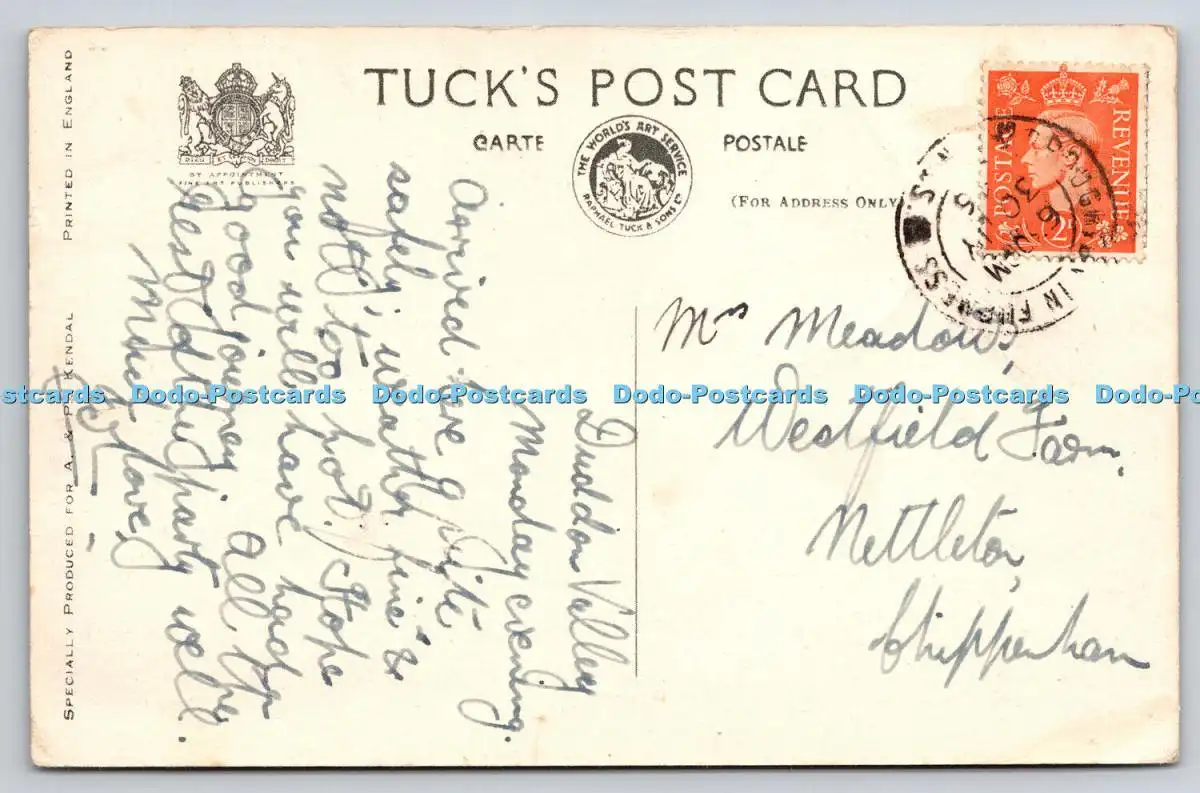 TUCK'S POST CARD
CARTE POSTALE
(FOR ADDRESS ONLY
THE WORLD'S ART SERVICE
RAPHAEL TUCK & SONS LD
DIEU ET MON DROIT
BY APPOINTMENT
FINE ART PUBLISHERS
PRINTED IN ENGLAND
SPECIALLY PRODUCED FOR A. & P. KENDAL
POSTAGE REVENUE
2D
IN FURNESS
Duddon Valley
Monday evening.
Arrived here quite
safely, weather fine &
not too hot. Hope
you will have had
a good journey. All the
best old thing
Much love,
Mrs Meadows,
Westfield Farm,
Nettleton,
Chippenham
Dodo-Postcards Dodo-Postcards Dodo-Postcards Dodo-Postcards Dodo-Postcards